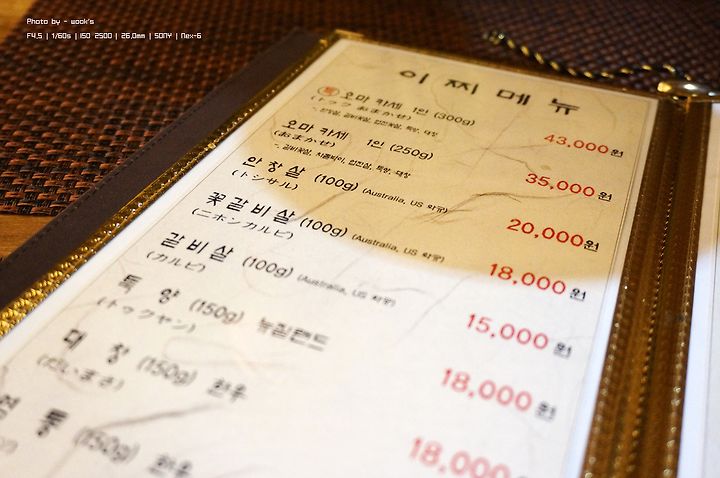 Photo by - wook's
F4.5 | 1/60s | ISO 2500 | 26.0mm | SONY | Nex-6
이 찌 메 뉴
특 오마 카세 1인 (300g) 43,000원
(トック おまかせ)
오마 카세 1인 (250g) 35,000원
(おまかせ)
안 창 살 (100g) (Australia, US 혹우) 20,000원
(トシサル)
꽃 갈 비 살 (100g) (Australia, US 혹우) 18,000원
(ニホンカルビ)
갈 비 살 (100g) (Australia, US 혹우) 15,000원
(カルビ)
특 양 (150g) 뉴질랜드 18,000원
(トックヤン)
대 창 (150g) 한우 18,000
통 (150g) 한우